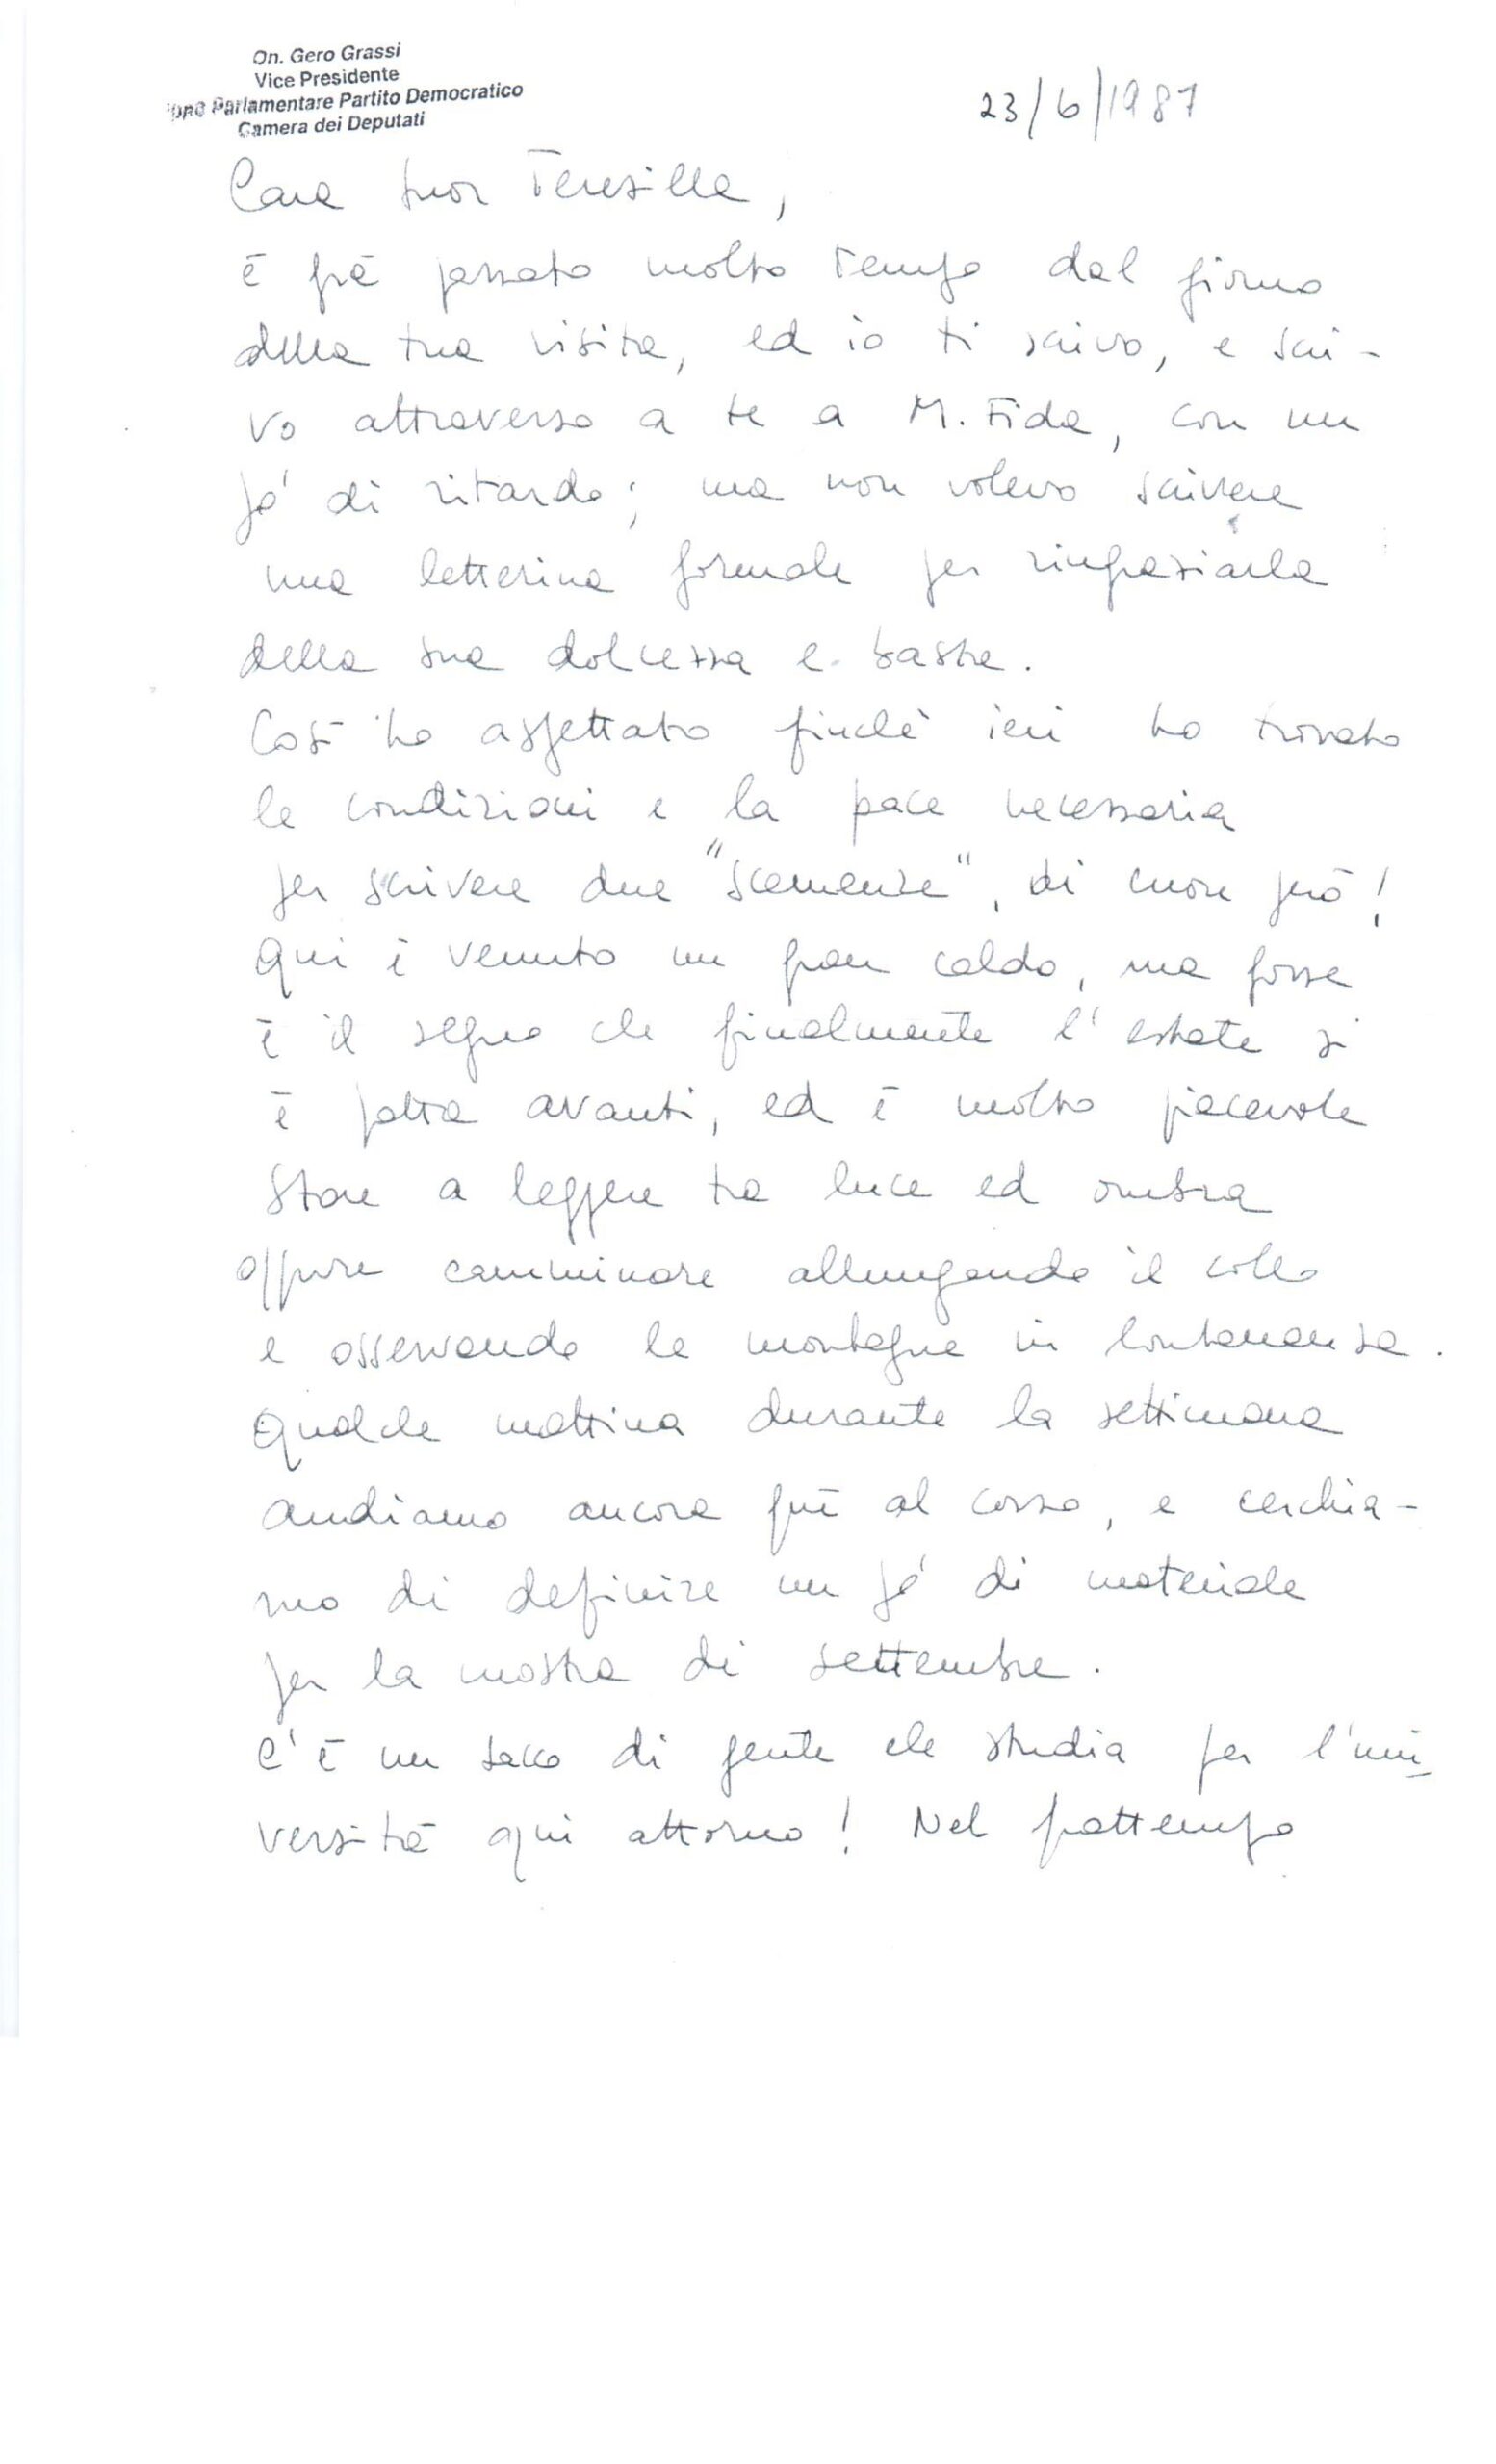 On. Gero Grassi
Vice Presidente
Parlamentare Partito Democratico
Camera dei Deputati
23/6/1987
Cara suor Teresilla,
è già passato molto tempo dal giorno
della tua visita, ed io ti scivo, e scri-
vo attraverso a te a M. Fida, con un
pò di ritardo; ma non volevo scrivere
una letterina formale per ringraziarla
della sua dolcezza e basta.
Così ho aspettato finchè ieri ho trovato
le condizioni e la pace necessaria
per scrivere due "scemenze", di cuore però!
Qui è venuto un gran caldo, ma forse
è il segno che finalmente l'estate si
è fatta avanti, ed è molto piacevole
stare a leggere tra luce ed ombra
oppure camminare allungando il collo
e osservando le montagne in lontananza.
Qualche mattina durante la settimana
andiamo ancora giù al corso, e cerchia-
mo di definire un pò di materiale
per la mostra di settembre.
C'è un sacco di gente che studia per l'uni
versità qui attorno! Nel frattempo